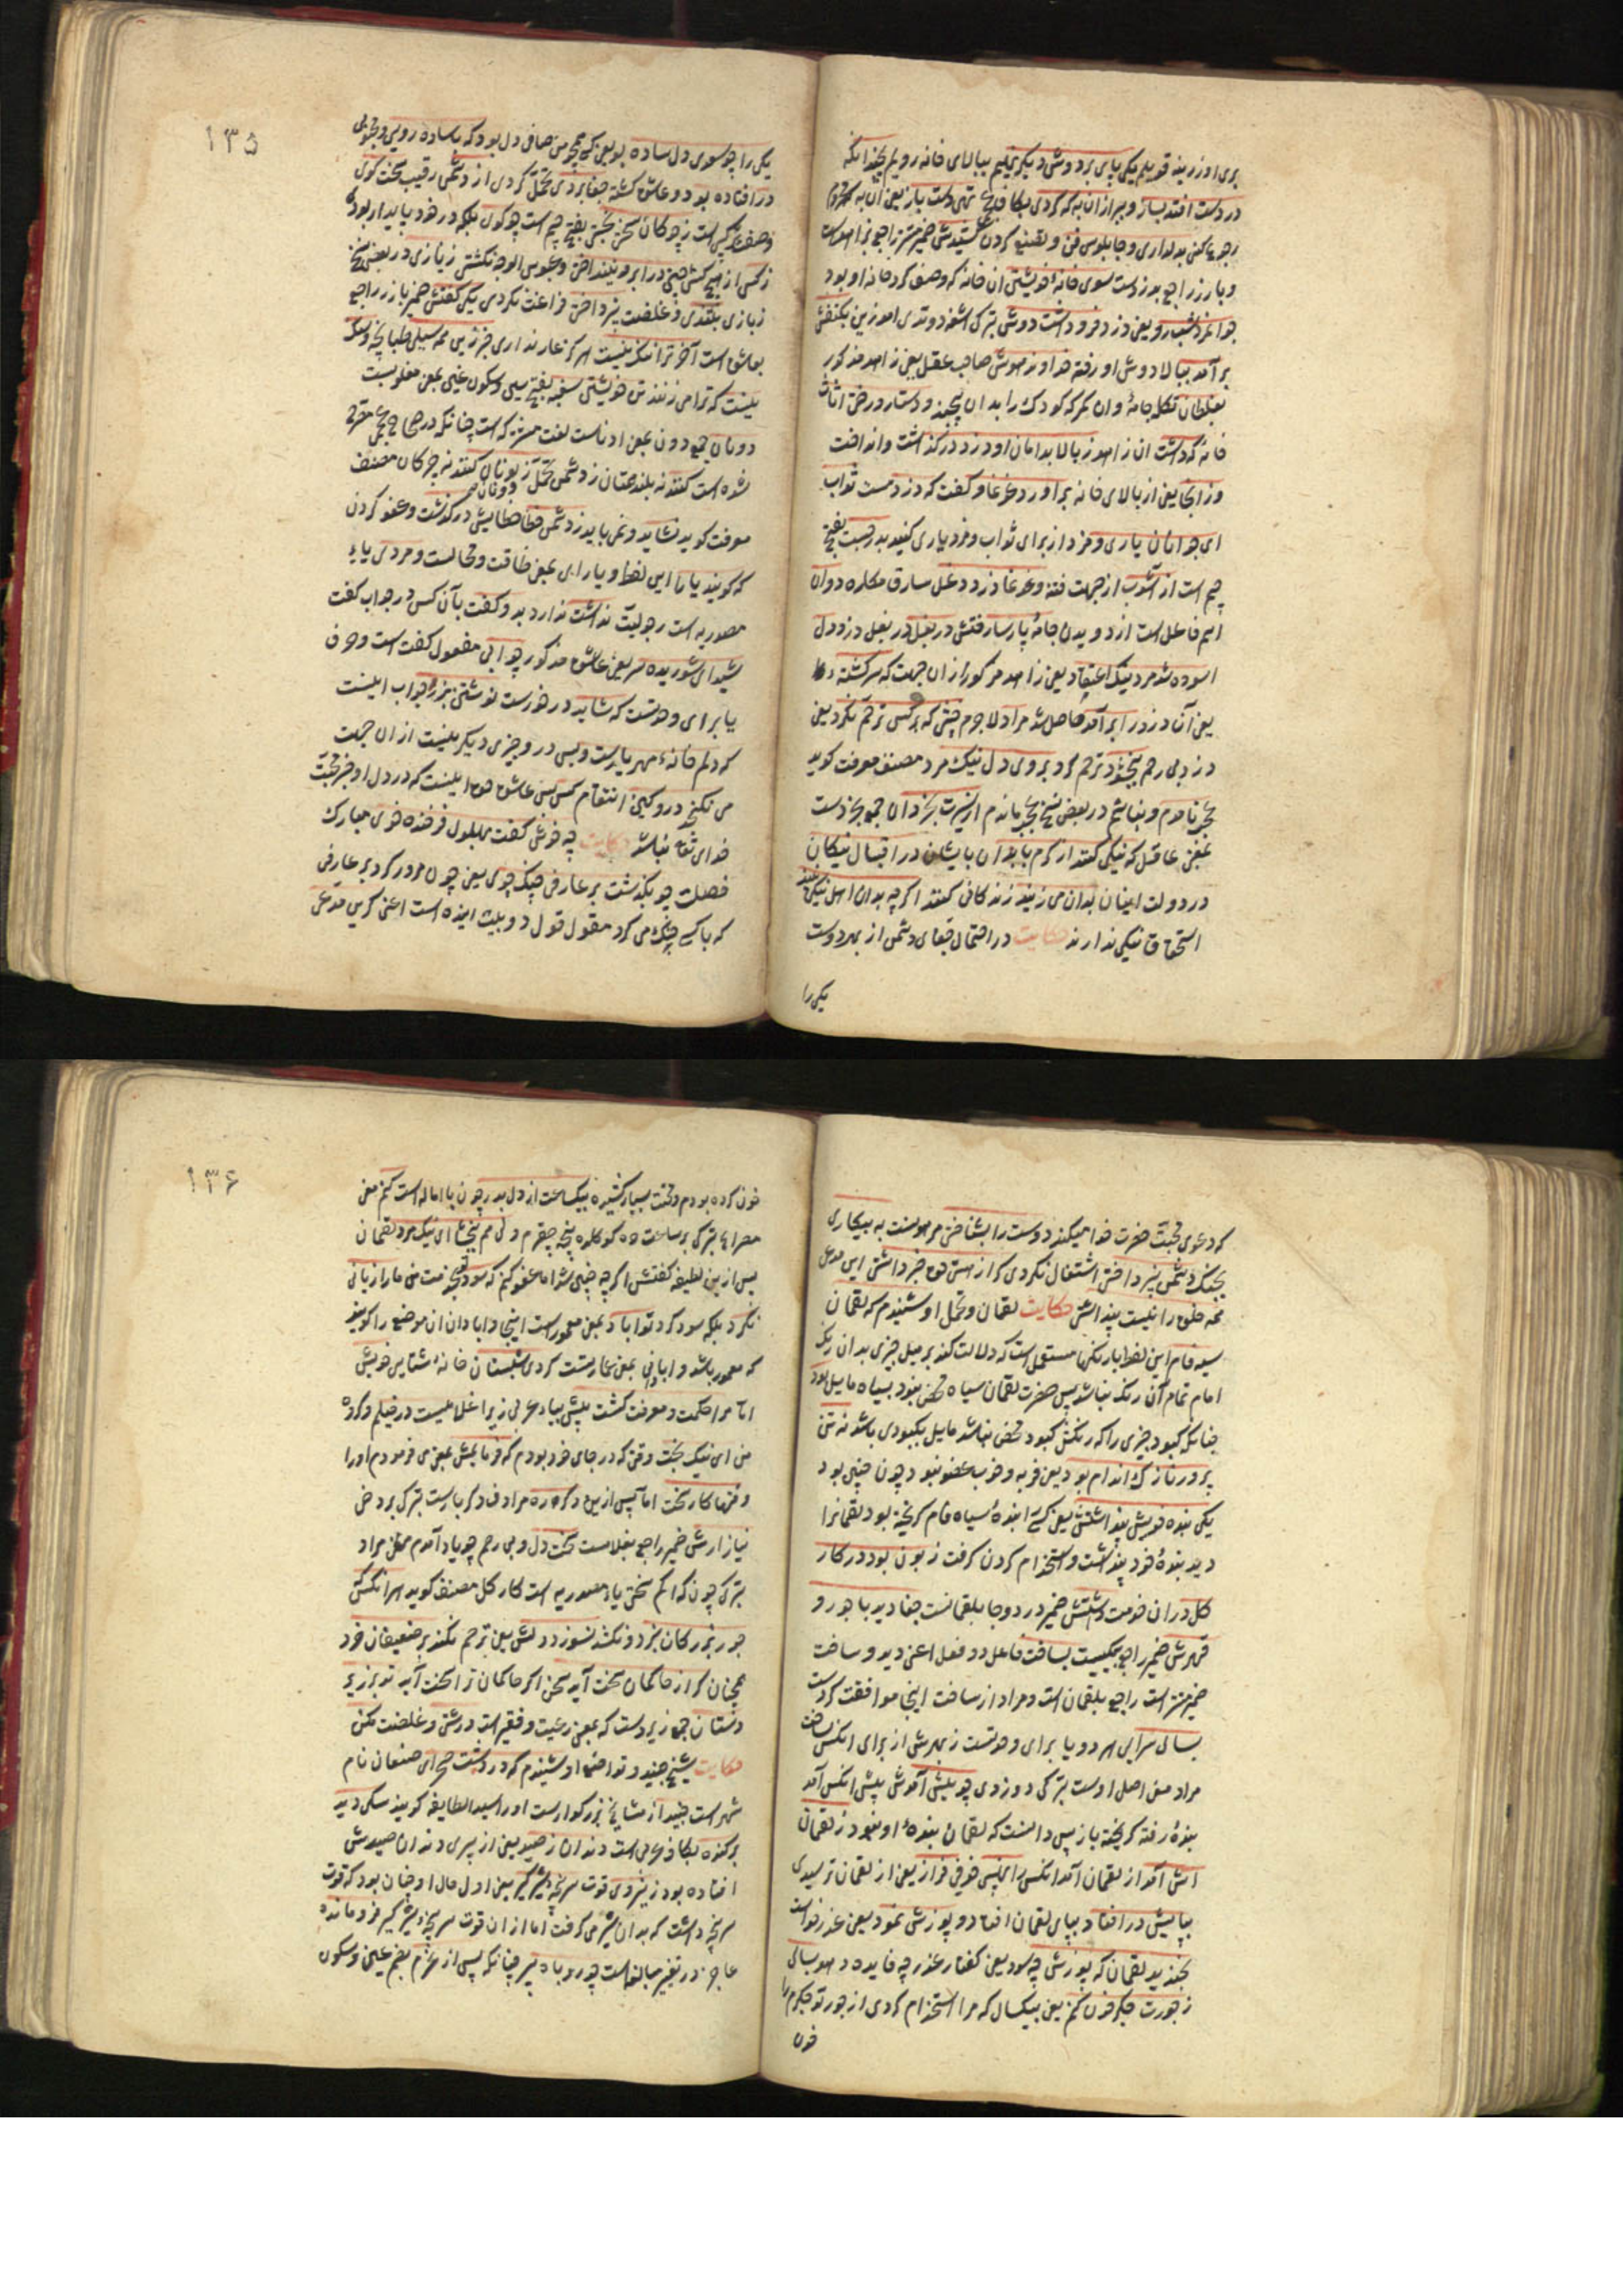 بری اوزرینه قویلم یکی پای بر دوش دیگر نهیم ببالای خانه رویم بچند انکه
در دست افتد بساز و ببر ازان به که کردی بکاف تهی دست باز یعنی ان به که محروم
رجوع کنی بدلداری و چاپلوسی فن و تصنع کردن کشیدش ضمیر مستتر راجع بزاهد است
و بارز راجع بدزد است سوی خانه خویشتن ان خانه که وصف کرد خانه او بود
جوانمرد شبرو یعنی دزد فرو داشت دوش
بر آمد ببالا دوش او رفته خداوند هوش صاحب عقل یعنی زاهد مذکور
بغلطاق کلاه جامه وان کمر که کودک را بدان پیچند و دستار و رخت اثاث
خانه که داشت ان زاهد ز بالا بدامان او دزد در کذاشت و انداخت
وز انجا یعنی از بالای خانه بر اورد غوغا و گفت که دزدست ثواب
ای جوانان یاری و مزد از برای ثواب و مزد یاری کنید بدر جست بفتح
جیم است از آشوب از جهت فتنه و غوغا دزد دغل سارق مکاره دوان
اسم فاعل است از دویدن جامه پارسا رفتش در بغل در بغل دزد دل
اسوده شد مرد نیک اعتقاد یعنی زاهد مذکور ازان جهت که سرکشته را
یعنی آن دزد را بر آمد حاصل شد مراد لاجرم خبیثی که بر کس ترحم نکرد یعنی
دزد بی رحم ببخشود ترحم کرد بر وی دل نیک مرد مصنف معرفت کوید
عجب نادرم و نباشم در بعض نسخ عجب ماندم از سیرت بخردان جمع بخردست
بمعنی عاقل که نیکی کنند از کرم با بدان بایشان در اقبال نیکان
در دولت اینان بدان می زیند زندکانی کنند اکرچه بدان اهل نیکی نیند
استحقاق نیکی ندارند حکایت در احتمال جفای دشمن از بهر دوست
یکی را
۱۳۵
یکی را چو سعدی دل ساده بود یعنی کسی همچو من صافی دل بود که با ساده رویی و محبوبی
در افتاده بود و عاشق کشته جفا بردی تحمل کردی از دشمن رقیب سخت کوی
وصف ترکیبی است ز چوکان سختی بجستی بفتح جیم است چو کوی بلکه در خود پایدار بود
ز کس از هیچ کس چین در ابرو نینداختی و عبوس الوجه نکشتی ز یازی در بعض نسخ
ز بازی بتندی و غلظت نپرداختی فراغت نکردی یکی کفتش ضمیر بارز راجع
بعاشق است آخر ترا ننک نیست هرکز عار نداری خبر زین همه سیلی طپانچه و سنک
نیست که ترا می زنند تن خویشتن سغبه بفتح سین و سکون غین بمعنی مغلوبست
دونان جمع دون بمعنی ادناست لغت مشترکه است چنانکه در صحاح عجمی مصرح
شده است کنند نه بلند همتان ز دشمن تحمل زبونان کنند نه چون کان مصنف
معرفت کوید نشاید و نمی باید ز دشمن خطا خطایش در کذشت و عفو کردن
که کویند یارا این لفظ و یارای بمعنی طاقت و مجالست و مردی یای
مصدریه است رجولیت نداشت ندارد بدو کفت بآن کس در جواب گفت
شیدای شوریده سر یعنی عاشق مذکور جوابی مفعول کفت است و حرف
یا برای وحدتست که شاید در خورست نوشتن بزر جواب اینست
که دلم خانه مهر یارست و بس در و چیزی دیکر نیست ازان جهت
می نکنجد درو کین انتقام کس پس عاشق حق اینست که در دل او جز محبت
خدای تعالی نباشد حکایت چه خوش گفت بهلول فرخنده خوی مبارک
خصلت چو بکذشت بر عارفی جنک جوی یعنی چون مرور کرد بر عارفی
که با کسی جنک می کرد مقول قول دو بیت اینده است اعنی کر این مدعی
که دعوی محبت حضرت خدا میکند دوست را بشناختی مر هوست به بیکاری
بجنک دشمن نپرداختی اشتغال نکردی کر از هستی حق خبر داشتی این مدعی
همه خلق را نیست پنداشتی حکایت لقمان و تحمل او شنیدم که لقمان
سیه فام این لفظ بارنکها مستعمل است که دلالت کند بر میل چیزی بدان رنک
اما تمام آن رنک نباشد پس حضرت لقمان سیاه محض نبود بسیاه مایل بود
چنانکه کبود چیزی را که رنکش کبود محض نباشد مایل بکبودی باشد نه تن
پرور نازک اندام بود یعنی فربه و خوب عضو نبود چون چنین بود
یکی بنده خویش پنداشتش یعنی کسی را بنده سیاه فام کریخته بود لقمانرا
دید بنده خود پنداشت و استخدام کردن کرفت زبون بود در کار
کل دران خدمت داشتش ضمیر در دو جا بلقمانست جفا دید با جور و
قهرش ضمیر راجع بیکیست بساخت فاعل دو فعل اعنی دید و ساخت
ضمیر مستتر است راجع بلقمان است و مراد از ساخت اینجا موافقت کردست
بسالی سرایی هر دو یا برای وحدتست ز بهرش از برای انکس بساخت
مراد معنی اصلی اوست بترکی دوزدی چو پیش آمدش پیش انکس آمد
بنده رفته کریخته باز پس دانست که لقمان بنده او نبود ز لقمان
اش آمد از لقمان آمد انکس را نهیبی خوفی فراز یعنی از لقمان ترسیدی
بپایش در افتاد بپای لقمان افتاد و پوزش نمود یعنی عذر خواست
بخندید لقمان که پوزش چه سود یعنی کفتار عذر چه فایده دهد بسالی
ز جورت جکر خون کنم یعنی بیکسال که مرا استخدام کردی از جور تو جکرم را
خون
۱۳۶
خون کرده بودم و محنت بسیار کشیده بیکساعت از دل بدر چون با اماله است کنم معنی
مصراع بترکی بر ساعت ده کوکلده نیجه چقرم ولی هم ببخشای ای نیک مرد لقمان
پس ازین لطیفه کفتش اکرچه چنین شد اما عفو کنم که سود تو بجز منت من مارا زیانی
نکرد بلکه سود کرد تو اباد بمعنی معمورست اینجا و ابادان ان موضع را کویند
که معمور باشد و ابادانی بمعنی عمارتست کردی شبستان خانه شتایی خویش
اما مرا حکمت و معرفت کشت بیش بیاء عربی زیرا غلامیست در خیلم و کروه
من ای نیک بخت وقتی که در جای خود بودم که فرمایمش بمعنی می فرمودم اورا
وقتها کار سخت اما پس ازین دکر ره مراد ف دکر بارست بترکی بر دخی
نیازارمش ضمیر راجع بغلامست سخت دل و بی رحم چو یاد آمدم سختی مراد
بترکی چون کدا کم سختی یاء مصدریه است کار کل مصنف کوید هر انکس که
جور بزرکان نبرد و نکشد نسوزد دلش یعنی ترحم نکند بر ضعیفان خرد
همچنان کر از حاکمان سخت آید سخن اکر حاکمان ترا سخت آید تو بر زیر
دستان جمع زیر دست که بمعنی رعیت و فقیر است درشتی و غلظت مکن
حکایت شیخ جنید و تواضع او شنیدم که در دشت صحرای صنعان نام
شهر است جنید از مشایخ بزرکوارست اورا سید الطایفه کویند سکی دید
بر کنده بکاف عربی است دندان ز صید یعنی از پیری دندان صیدش
افتاده بود ز نیروی قوت سرپنجه شیر کیر یعنی اول حال او چنان بود که قوت
سرپنجه داشت که بدان شیر می کرفت اما ازان قوت سرپنجه شیر کیر فرو مانده
عاجز در تغیر مبالغه است چو روباه پیر چنانکه پس از غرم بضم غین و سکون